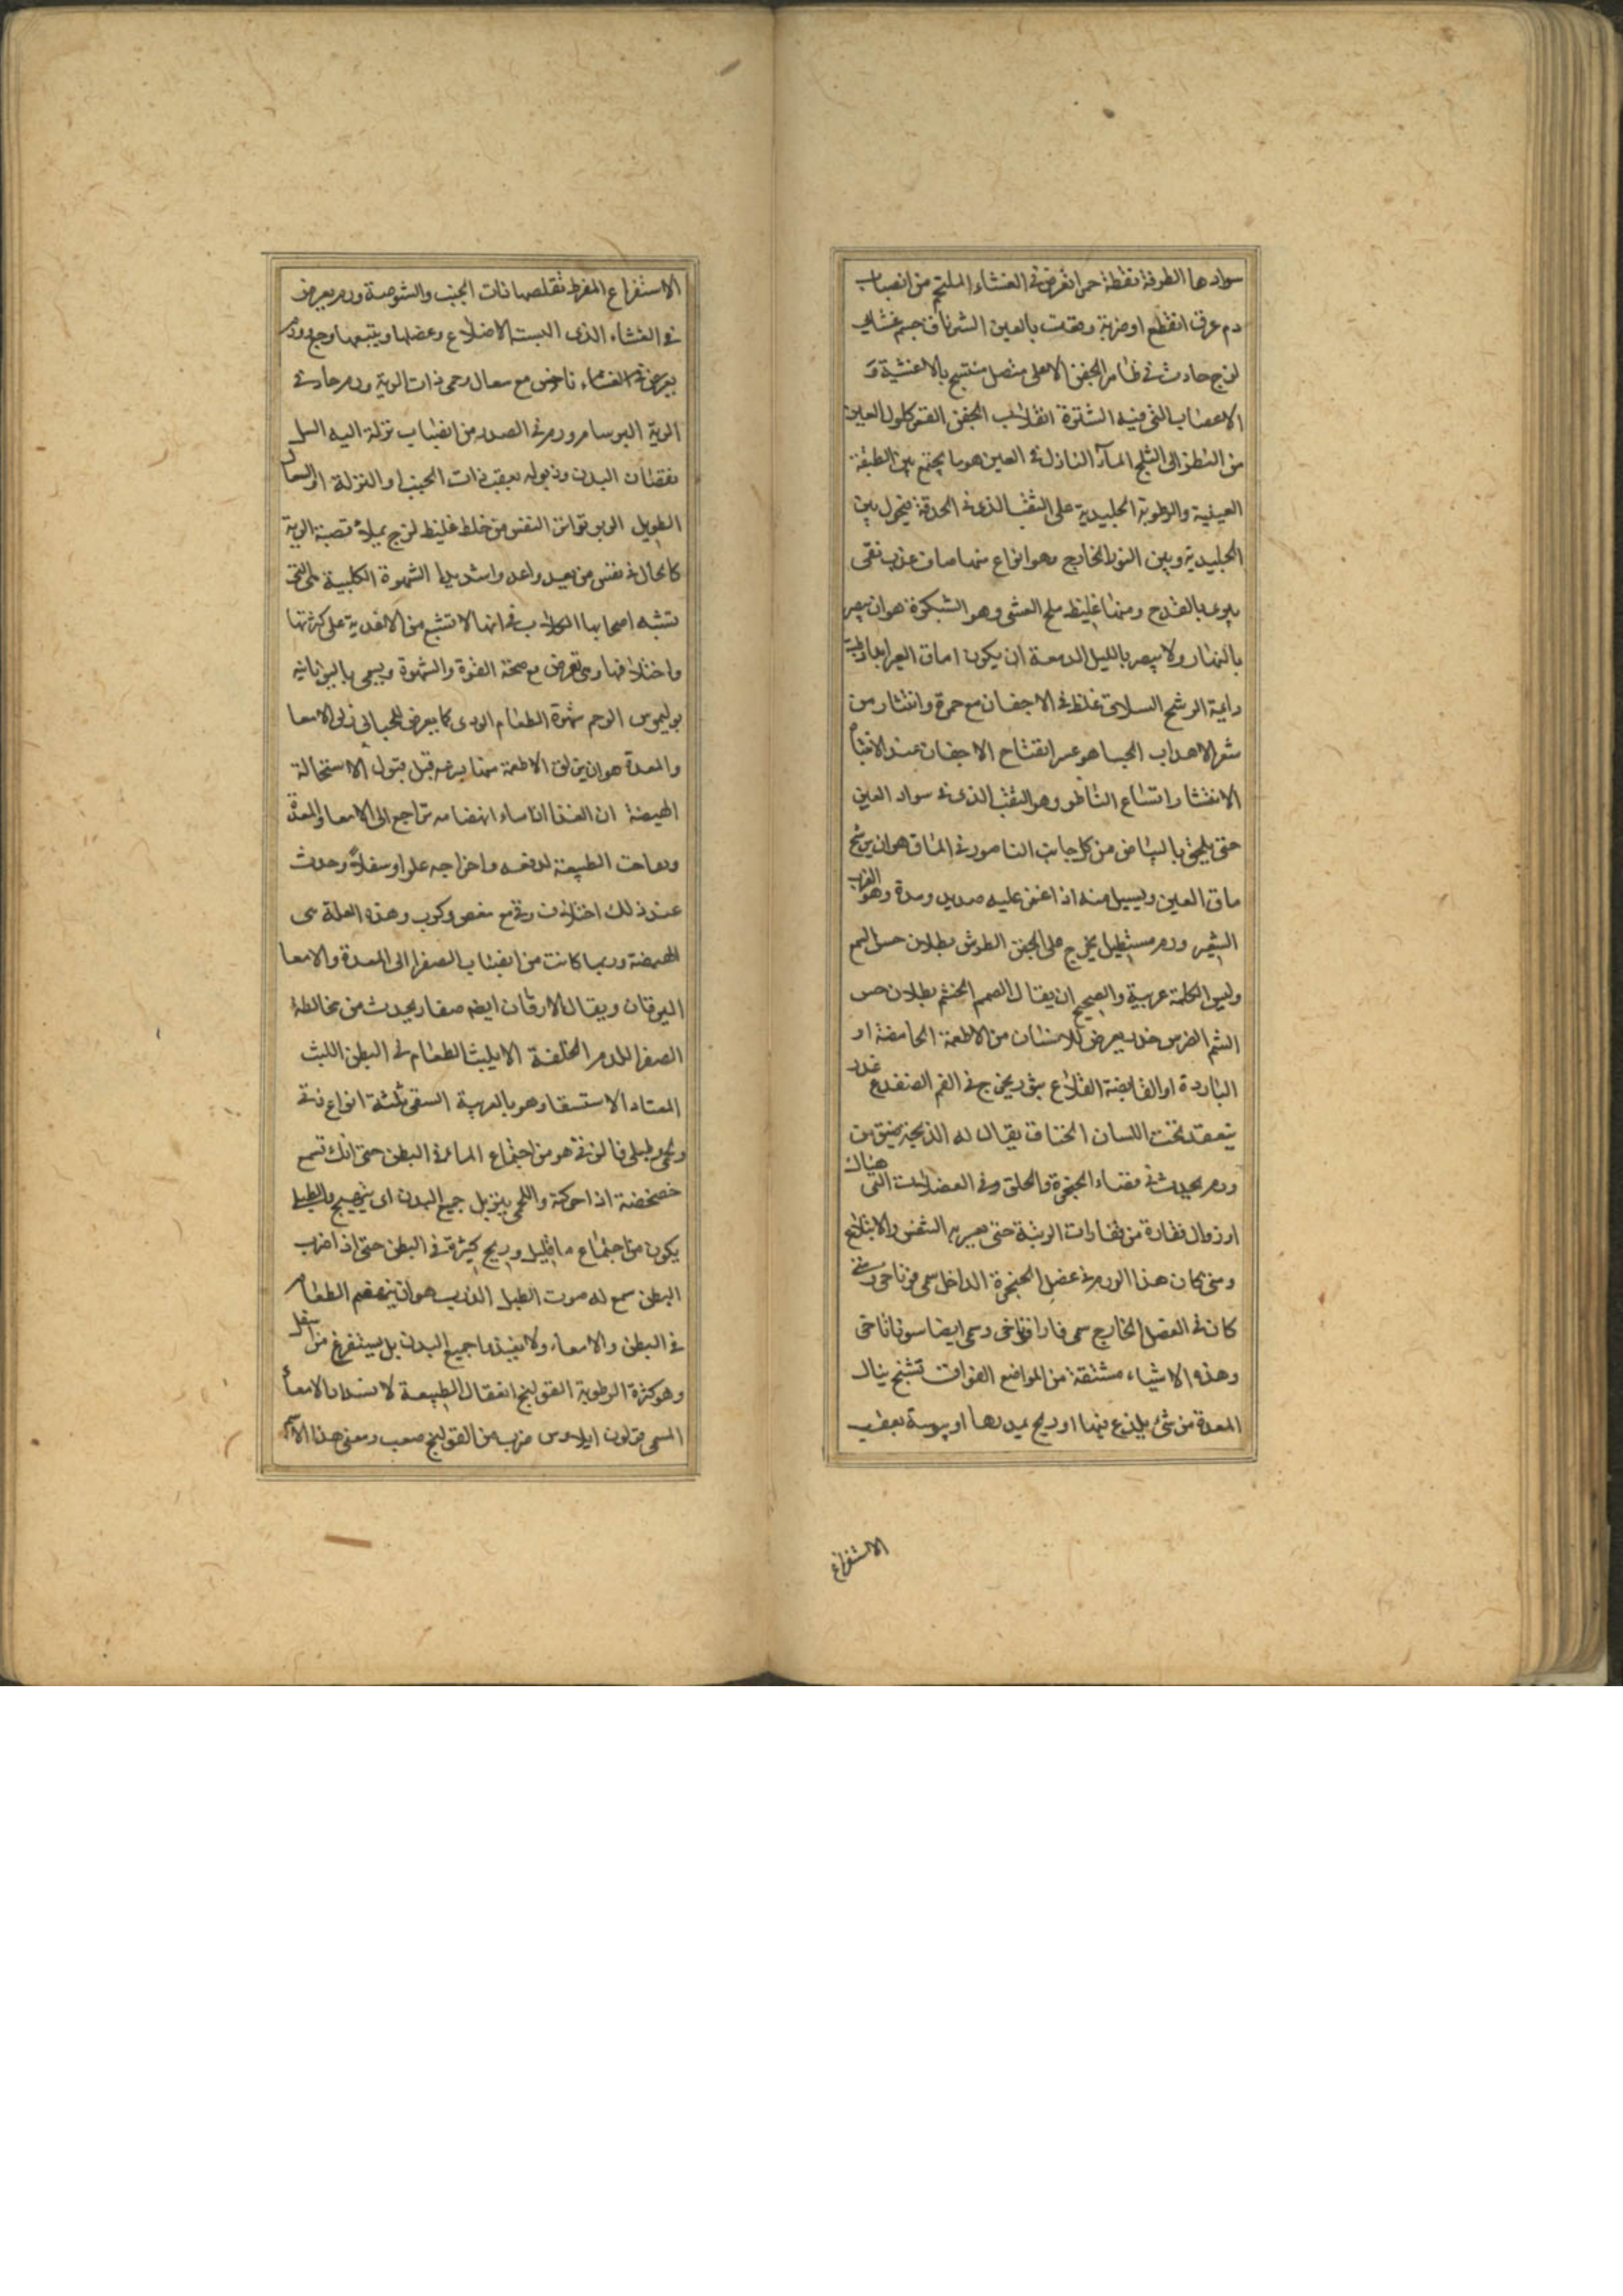 سوادها الطرفة نقطة حمرا تعرض فى الغشاء الملتحم من انصباب
دم عرق انقطع او ضربة وقعت بالعين الشرناق جسم غشائى
لزج حادث فى ظاهر الجفن الاعلى متصل منتسج بالاغشية و
الاعصاب التى فيه الشترة انقلاب الجفن القمر كلول العين
من النظر الى الثلج المآء النازل فى العين هو ما يجتمع بين الطبقة
العينية والرطوبة الجليدية على الثقب الذى فى الحدقة فيحول بين
الجليدية وبين النور الخارج وهو انواع منها صاف عذب نقى
يبرء بالقدح ومنها غليظ ملح العشى وهو الشبكرة هو ان يبصر
بالنهار ولا يبصر بالليل الدمعة ان يكون اماق العين ابدا رطبة
دايمة الرشح السلاق غلظ فى الاجفان مع حمرة وانتثار من
شعر الاهداب الجسا هو عسر انفتاح الاجفان عند الانتباه
الانتشار اتساع الناظر وهو الثقب الذى فى سواد العين
حتى يلحق بالبياض من كل جانب الناصور فى الماق هو ان يرشح
ماق العين ويسيل منه اذا غمز عليه صديد ومدة وهو الغرب
الشعير ورم مستطيل يخرج على الجفن الطرش بطلان حس السمع
وليس الكلمة عربية والصحيح ان يقال الصمم الخشم بطلان حس
الشم الضرس خدر يعرض للاسنان من الاطعمة الحامضة او
الباردة او القابضة القلاع بثور يخرج فى الفم الضفدع غدد
يتعقد تحت اللسان الخناق يقال له الذبحة يضيق من
ورم يحدث فى فضاء الحنجرة والحلق وفى العضلات التى هناك
او زوال فقارة من فقارات الرقبة حتى يعسر به التنفس والابتلاع
ومتى كان هذا الورم فى عضل الحنجرة الداخل سمى قوناخى ومتى
كان فى العضل الخارج سمى فاراقوناخى وسمى ايضا سوناناخى
وهذه الاشياء مشتقة من المواضع الفواق تشنج ينال
المعدة من شئ يلذع فيها او ريح يمددها او يبوسة بعقب
الاستفراغ
الاستفراغ المفرط تقلصها ذات الجنب والشوصة ورم يعرض
فى الغشاء الذى البسته الاضلاع وعضلها ويتبعها وجع ورم
يعرض فى الغشاء ناخس مع سعال وحمى ذات الرية ورم حادث فى
الرية البرسام ورم فى الصدر من انصباب نزلة اليه السل
نقصان البدن وذبوله بعقب ذات الجنب او النزلة او السعال
الطويل الربو تواتر النفس من خلط غليظ لزج يملأ قصبة الرية
كالحال فى نفس من يعيد واعد واشد بها الشهوة الكلبية هى التى
تشبه اصحابها الكلاب فى انها لا تشبع من الاغدية على كثرتها
واختلافها وهى تعرض مع صحة القوة والشهوة ويسمى باليونانيه
بوليموس الوحم شهوة الطعام الردى كما يعرض للحبالى زلق الامعا
والمعدة هو ان يتزلق الاطعمة منها بسرعة قبل قبول الاستحالة
الهيضة ان الغذا اذا ساء انهضامه تراجع الى الامعا والمعدة
وهاجت الطبيعة لدفعه واخراجه علوا وسفلا وحدث
عند ذلك اختلاف وقئ مع مغص وكرب وهذه العلة هى
الهيضة وربما كانت من انصباب الصفرا الى المعدة والامعا
اليرقان ويقال الارقان ايضا صفار يحدث من مخالطة
الصفرا للدم الخلفة الا يلبث الطعام فى البطن اللبث
المعتاد الاستسقاء وهو بالعربية السقى ثلثة انواع زقى
ولحمى وطبلى فالزقى هو من اجتماع الماء فى البطن حتى انك تسمع
خضخضة اذا حركته واللحمى يترهل جميع البدن اى يتهيج والطبلى
يكون من اجتماع ماء قليل وريح كثيرة فى البطن حتى اذا ضرب
البطن سمع له صوت الطبل الذرب هو ان ينهضم الطعام
فى البطن والامعاء ولا يغتذى جميع البدن بل يستفرغ من اسفل
وهو كثرة الرطوبة القولنج انعقال الطبيعة لانسداد الامعاء
المسمى قولون ايلاوس ضرب من القولنج صعب ومعنى هذا الاسم